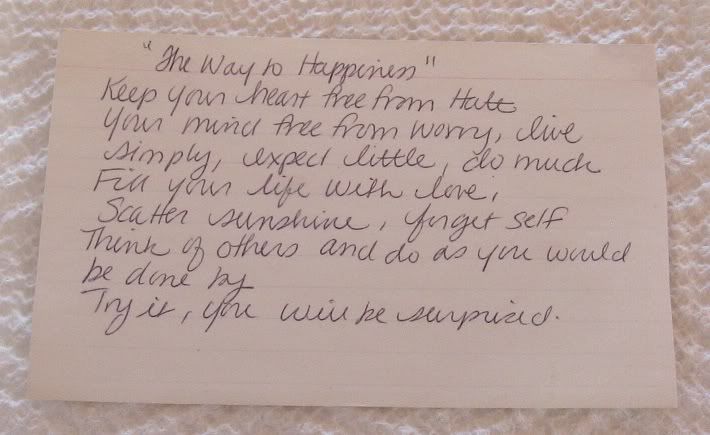 "The Way to Happiness"
Keep your heart free from Hate
Your mind free from worry, live
simply, expect little, do much
Fill your life with love,
Scatter sunshine, forget self
Think of others and do as you would
be done by
Try it, you will be surprised.